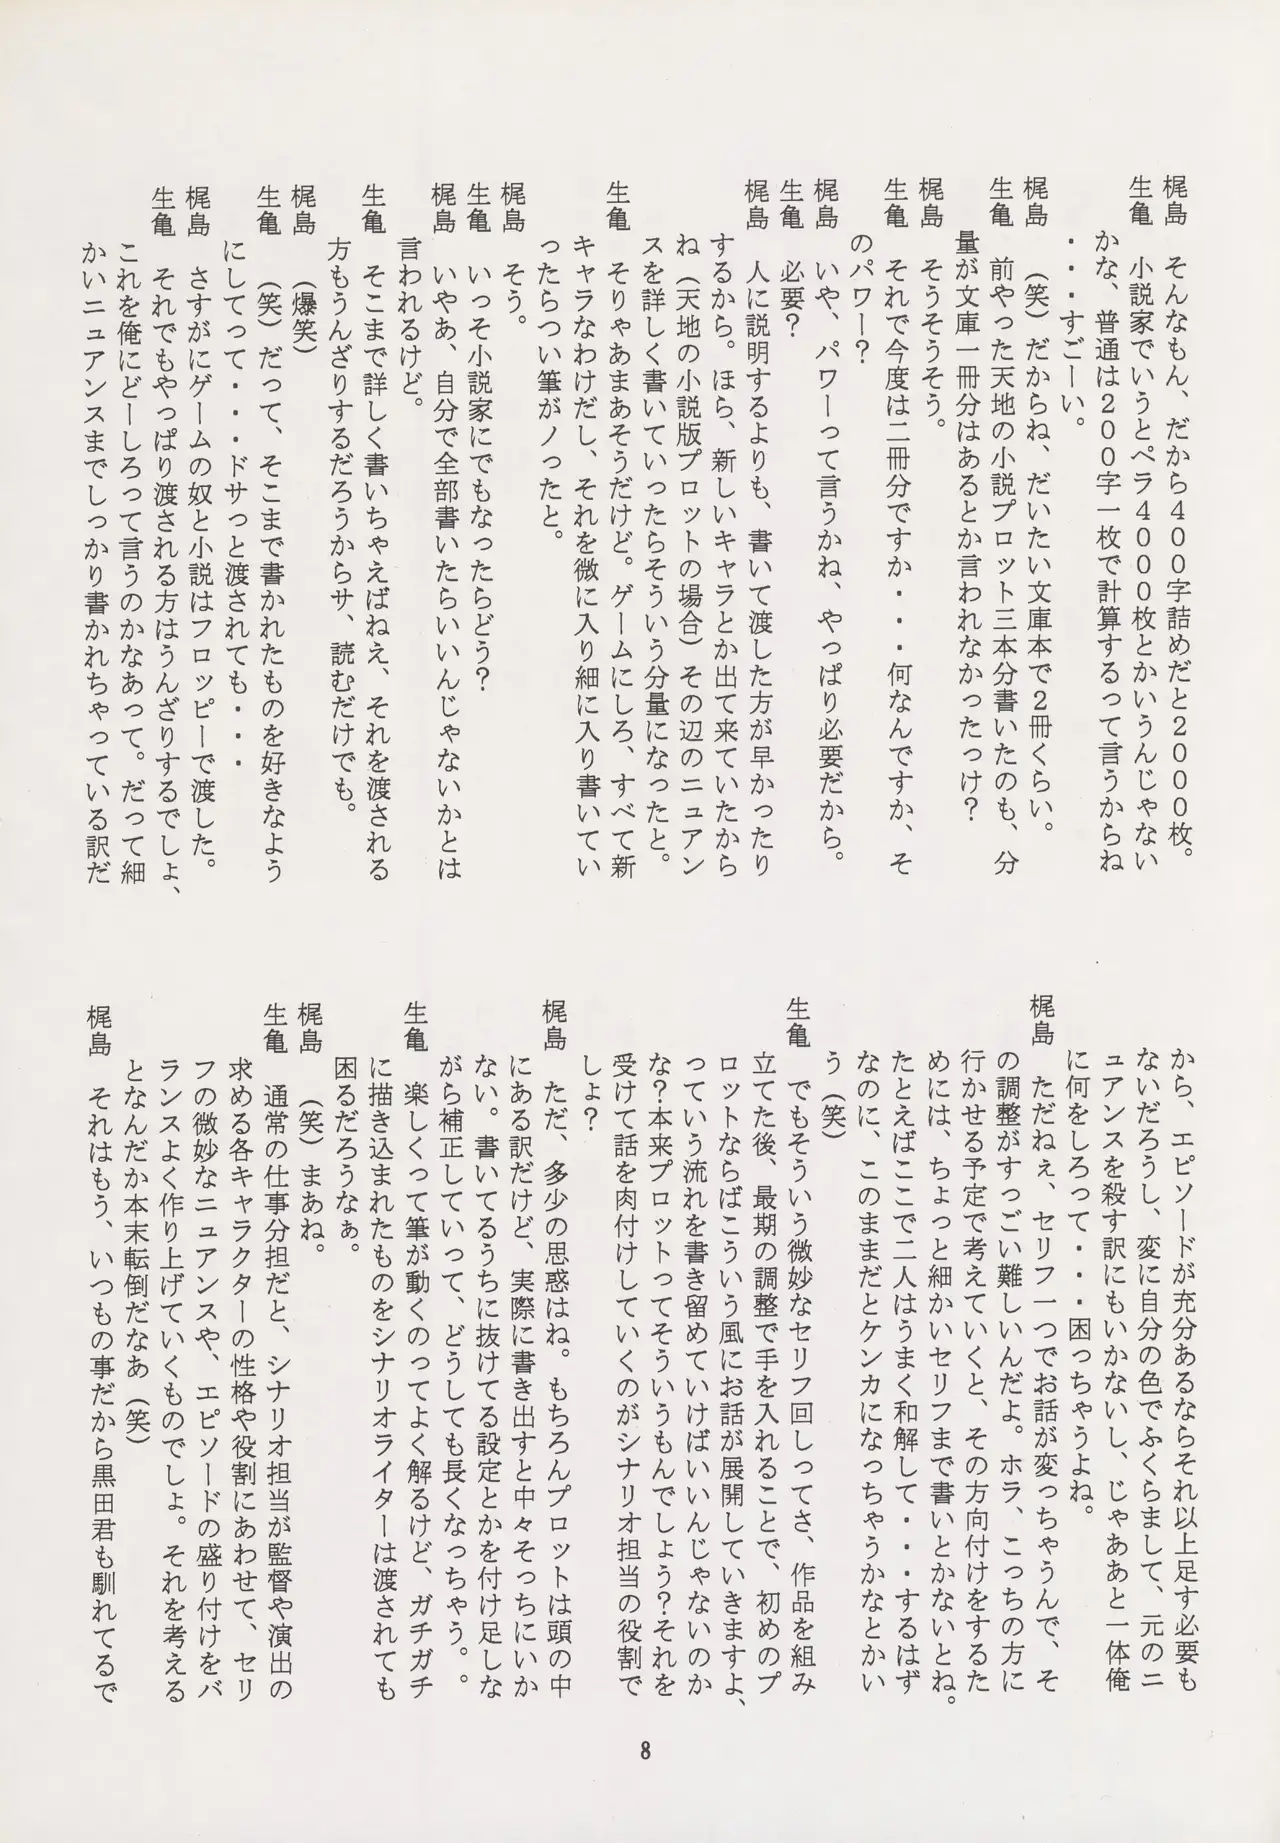 梶島　そんなもん、だから４００字詰めだと２０００枚。
生亀　小説家でいうとペラ４０００枚とかいうんじゃない
かな、普通は２００字一枚で計算するって言うからね
・・・すごーい。
梶島　（笑）だからね、だいたい文庫本で２冊くらい。
生亀　前やった天地の小説プロット三本分書いたのも、分
量が文庫一冊分はあるとか言われなかったっけ？
梶島　そうそうそう。
生亀　それで今度は二冊分ですか・・・何なんですか、そ
のパワー？
梶島　いや、パワーって言うかね、やっぱり必要だから。
生亀　必要？
梶島　人に説明するよりも、書いて渡した方が早かったり
するから。ほら、新しいキャラとか出て来ていたから
ね（天地の小説版プロットの場合）その辺のニュアン
スを詳しく書いていったらそういう分量になったと。
生亀　そりゃあまあそうだけど。ゲームにしろ、すべて新
キャラなわけだし、それを微に入り細に入り書いてい
ったらつい筆がノったと。
梶島　そう。
生亀　いっそ小説家にでもなったらどう？
梶島　いやあ、自分で全部書いたらいいんじゃないかとは
言われるけど。
生亀　そこまで詳しく書いちゃえばねえ、それを渡される
方もうんざりするだろうからサ、読むだけでも。
梶島　（爆笑）
生亀　（笑）だって、そこまで書かれたものを好きなよう
にしてって・・・ドサっと渡されても・・・
梶島　さすがにゲームの奴と小説はフロッピーで渡した。
生亀　それでもやっぱり渡される方はうんざりするでしょ、
これを俺にどーしろって言うのかなあって。だって細
かいニュアンスまでしっかり書かれちゃっている訳だ
から、エピソードが充分あるならそれ以上足す必要も
ないだろうし、変に自分の色でふくらまして、元のニ
ュアンスを殺す訳にもいかないし、じゃああと一体俺
に何をしろって・・・困っちゃうよね。
梶島　ただねぇ、セリフ一つでお話が変っちゃうんで、そ
の調整がすっごい難しいんだよ。ホラ、こっちの方に
行かせる予定で考えていくと、その方向付けをするた
めには、ちょっと細かいセリフまで書いとかないとね。
たとえばここで二人はうまく和解して・・・するはず
なのに、このままだとケンカになっちゃうかなとかい
う（笑）
生亀　でもそういう微妙なセリフ回しってさ、作品を組み
立てた後、最期の調整で手を入れることで、初めのプ
ロットならばこういう風にお話が展開していきますよ、
っていう流れを書き留めていけばいいんじゃないのか
な？本来プロットってそういうもんでしょう？それを
受けて話を肉付けしていくのがシナリオ担当の役割で
しょ？
梶島　ただ、多少の思惑はね。もちろんプロットは頭の中
にある訳だけど、実際に書き出すと中々そっちにいか
ない。書いてるうちに抜けてる設定とかを付け足しな
がら補正していって、どうしても長くなっちゃう。。
生亀　楽しくって筆が動くのってよく解るけど、ガチガチ
に描き込まれたものをシナリオライターは渡されても
困るだろうなぁ。
梶島　（笑）まあね。
生亀　通常の仕事分担だと、シナリオ担当が監督や演出の
求める各キャラクターの性格や役割にあわせて、セリ
フの微妙なニュアンスや、エピソードの盛り付けをバ
ランスよく作り上げていくものでしょ。それを考える
となんだか本末転倒だなあ（笑）
梶島　それはもう、いつもの事だから黒田君も馴れてるで
8